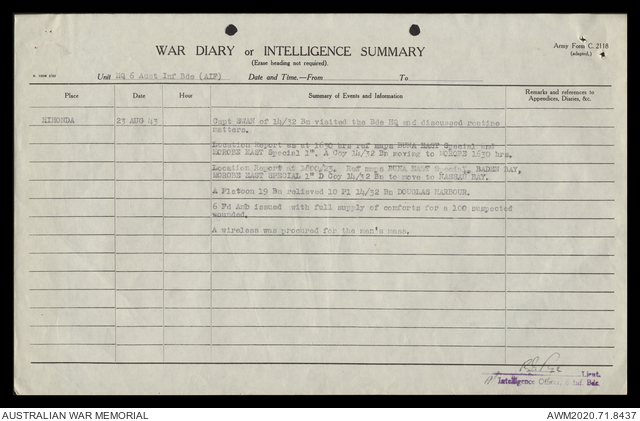 WAR DIARY or INTELLIGENCE SUMMARY
(Erase heading not required).
Army Form C. 2118
(adapted.)
Unit HQ 6 Aust Inf Bde (AIF) Date and Time.—From To
Place Date Hour Summary of Events and Information Remarks and references to Appendices, Diaries, &c.
23 AUG 43 Capt of 14/32 Bn visited the Bde HQ and discussed routine
matters.
Location Report as at 1630 hrs ref maps EAST Special and
EAST Special 1". A Coy 14/32 Bn moving to 1630 hrs.
Location Report at Ref maps EAST Special, BADEN BAY,
EAST SPECIAL 1" D Coy 14/32 Bn to move to BAY.
A Platoon 19 Bn relieved 10 Pl 14/32 Bn DOUGLAS HARBOUR.
6 Fd Amb issued with full supply of comforts for a 100 suspected
wounded.
A wireless was procured for the men's mess.
Lieut.
Intelligence Officer, 6 Inf. Bde.
AUSTRALIAN WAR MEMORIAL
AWM2020.71.8437